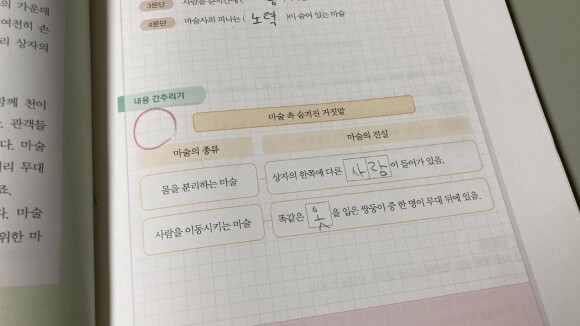 의 가운데
여전히 손
리 상자의
함께 천이
. 관객들
다. 마술
거리 무대
죠.
다. 마술
위한 마
3문단
4문단 마술사의 피나는 ( 노력 )이 숨어 있는 마술
내용 간추리기
마술 속 숨겨진 거짓말
마술의 종류 마술의 진실
몸을 분리하는 마술 상자의 한쪽에 다른 사람이 들어가 있음.
사람을 이동시키는 마술 똑같은 옷을 입은 쌍둥이 중 한 명이 무대 뒤에 있음.